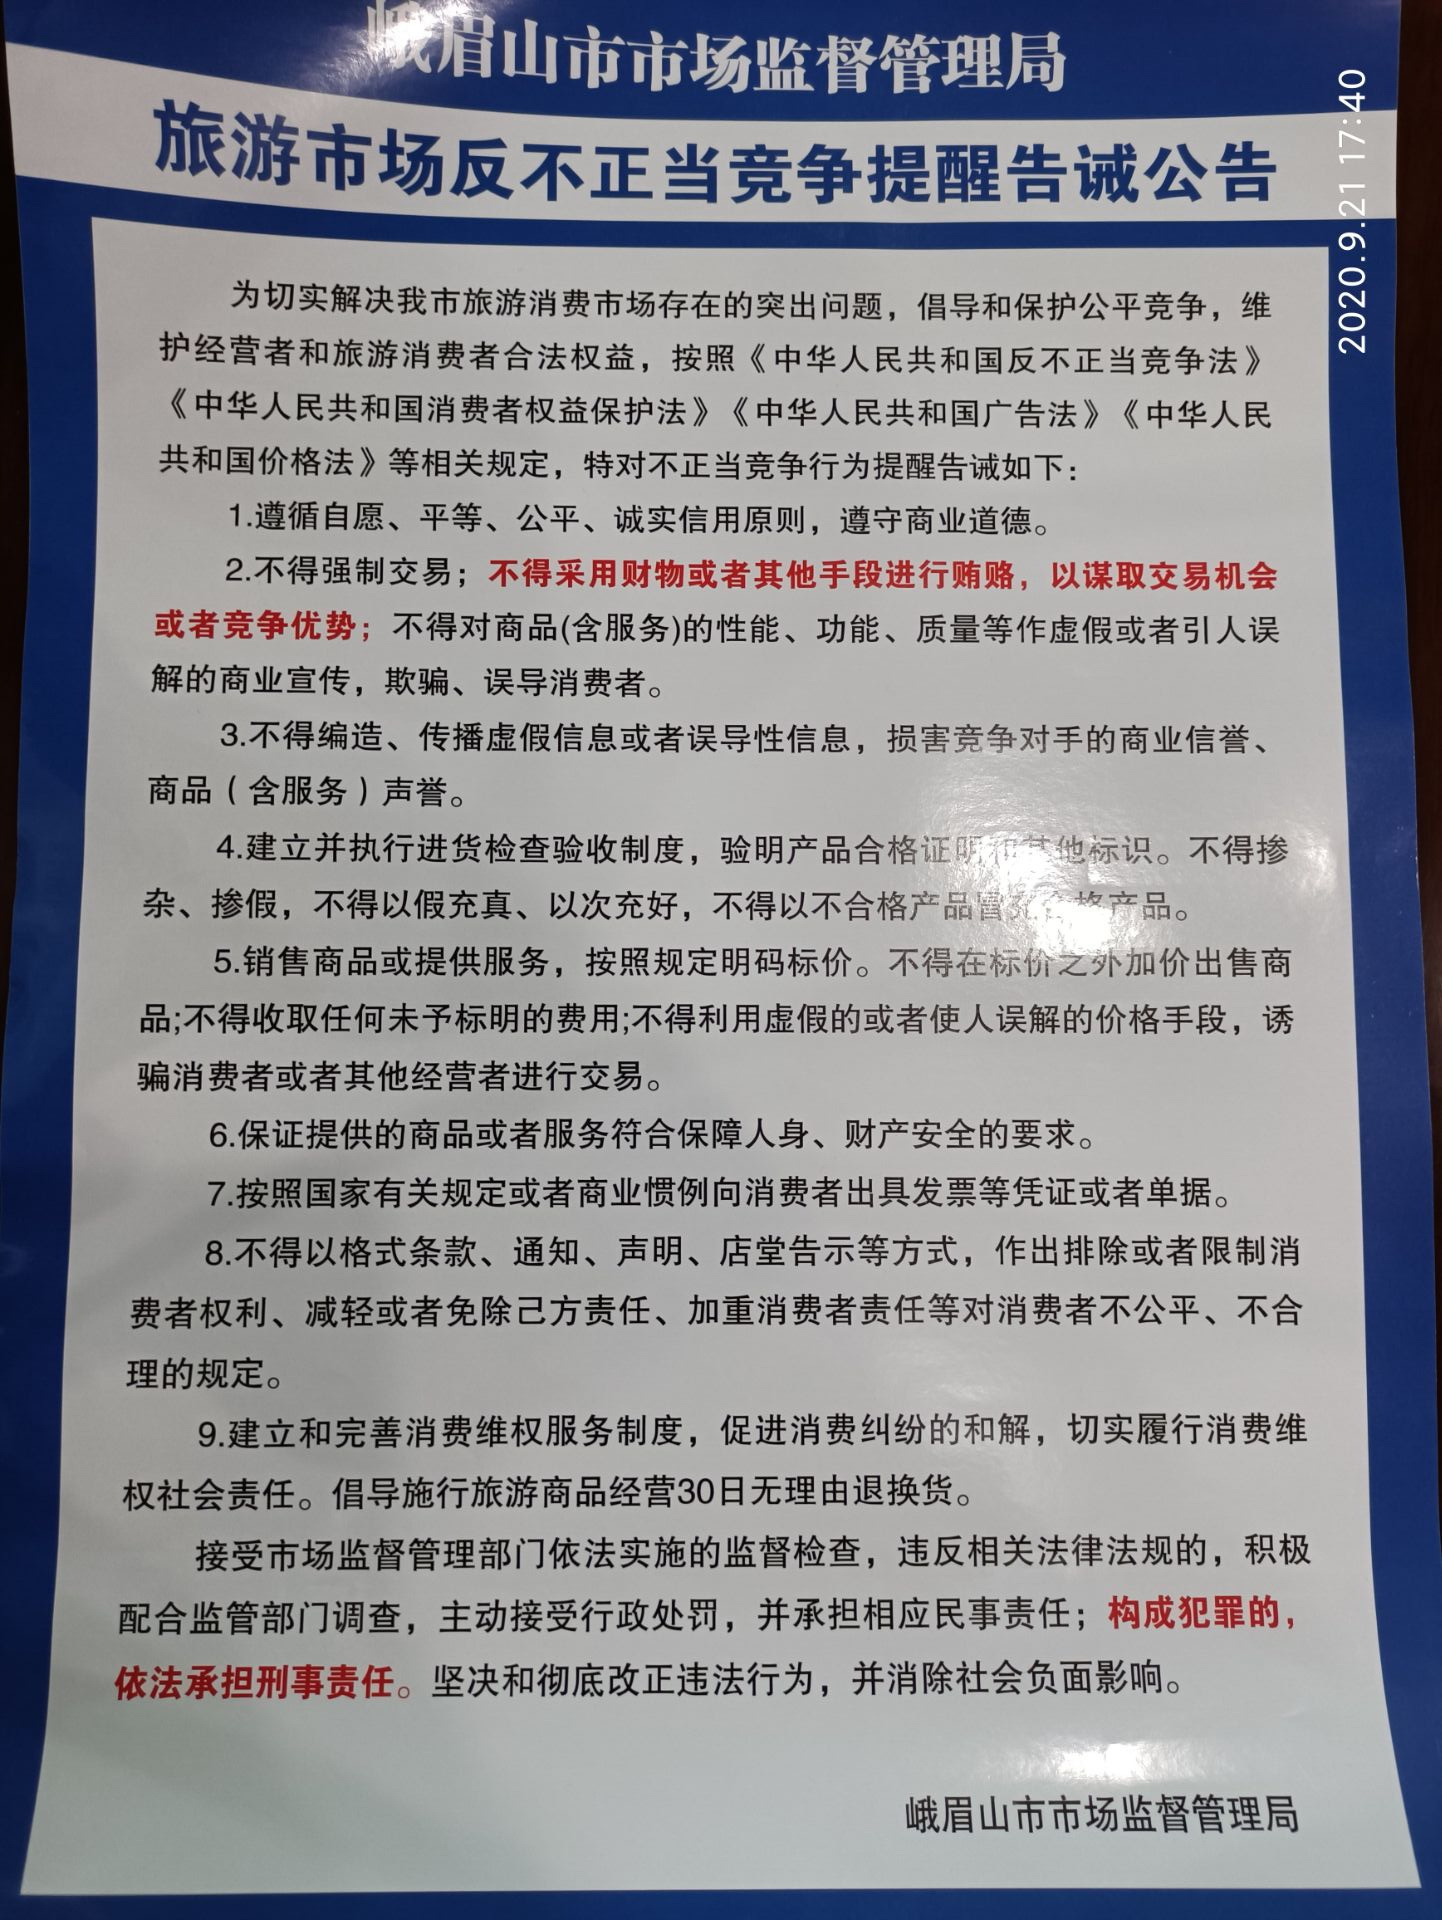 峨眉山市市场监督管理局
旅游市场反不正当竞争提醒告诫公告
2020.9.21 17:40
为切实解决我市旅游消费市场存在的突出问题，倡导和保护公平竞争，维
护经营者和旅游消费者合法权益，按照《中华人民共和国反不正当竞争法》
《中华人民共和国消费者权益保护法》《中华人民共和国广告法》《中华人民
共和国价格法》等相关规定，特对不正当竞争行为提醒告诫如下：
1.遵循自愿、平等、公平、诚实信用原则，遵守商业道德。
2.不得强制交易；不得采用财物或者其他手段进行贿赂，以谋取交易机会
或者竞争优势；不得对商品(含服务)的性能、功能、质量等作虚假或者引人误
解的商业宣传，欺骗、误导消费者。
3.不得编造、传播虚假信息或者误导性信息，损害竞争对手的商业信誉、
商品（含服务）声誉。
4.建立并执行进货检查验收制度，验明产品合格证明和其他标识。不得掺
杂、掺假，不得以假充真、以次充好，不得以不合格产品冒充合格产品。
5.销售商品或提供服务，按照规定明码标价。不得在标价之外加价出售商
品;不得收取任何未予标明的费用;不得利用虚假的或者使人误解的价格手段，诱
骗消费者或者其他经营者进行交易。
6.保证提供的商品或者服务符合保障人身、财产安全的要求。
7.按照国家有关规定或者商业惯例向消费者出具发票等凭证或者单据。
8.不得以格式条款、通知、声明、店堂告示等方式，作出排除或者限制消
费者权利、减轻或者免除己方责任、加重消费者责任等对消费者不公平、不合
理的规定。
9.建立和完善消费维权服务制度，促进消费纠纷的和解，切实履行消费维
权社会责任。倡导施行旅游商品经营30日无理由退换货。
接受市场监督管理部门依法实施的监督检查，违反相关法律法规的，积极
配合监管部门调查，主动接受行政处罚，并承担相应民事责任；构成犯罪的，
依法承担刑事责任。坚决和彻底改正违法行为，并消除社会负面影响。
峨眉山市市场监督管理局